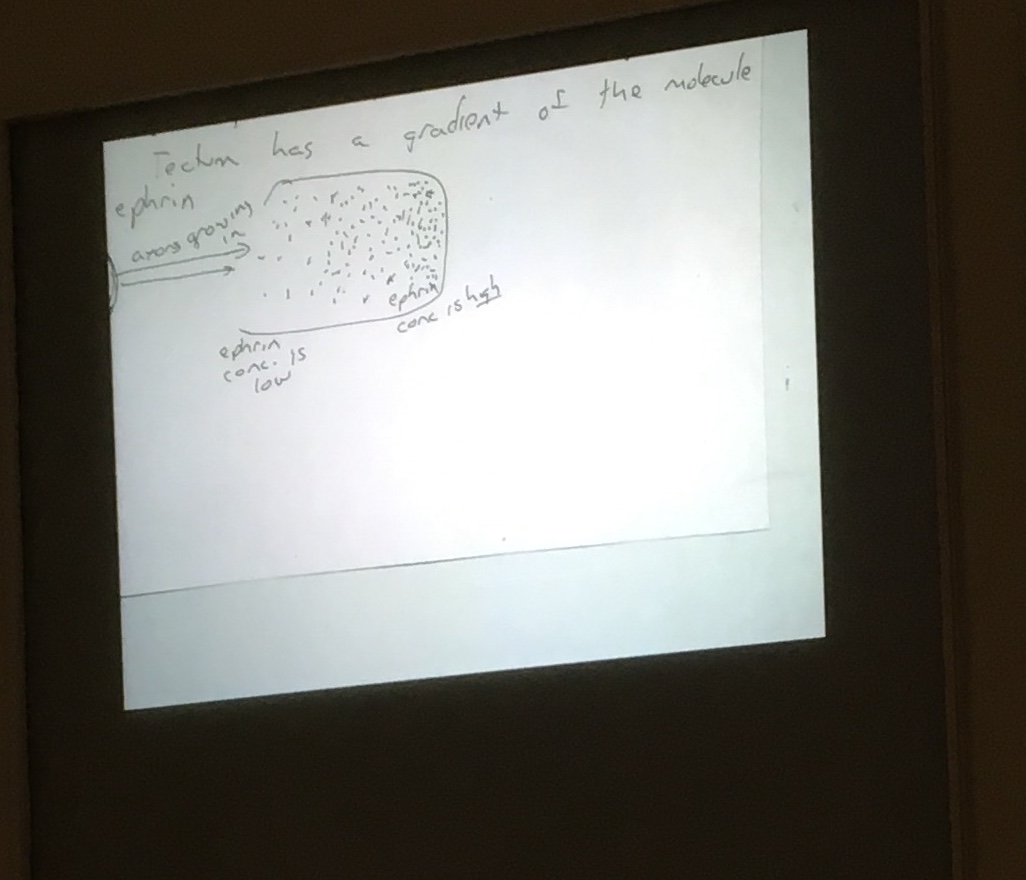 Tectum has a gradient of the molecule
ephrin
axons growing
in
ephrin
conc is high
ephrin
conc. is
low